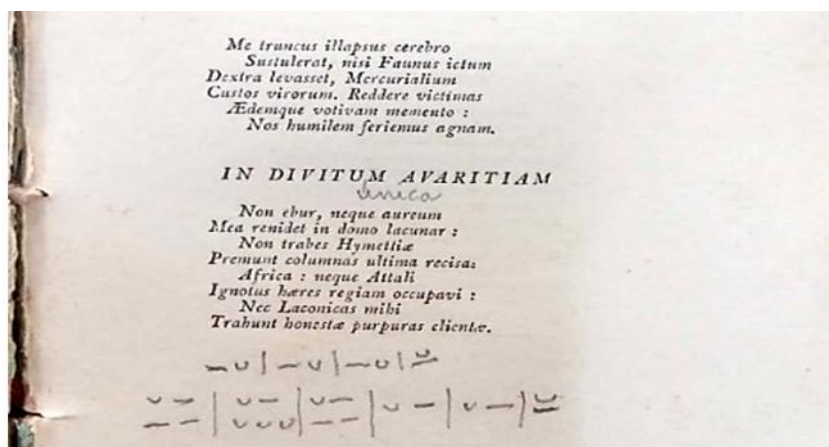 Me truncus illapsus cerebro
Sustulerat, nisi Faunus ictum
Dextra levasset, Mercurialium
Custos virorum. Reddere victimas
Ædemque votivam memento :
Nos humilem feriemus agnam.
IN DIVITUM AVARITIAM
unica
Non ebur, neque aureum
Mea renidet in domo lacunar :
Non trabes Hymettiæ
Premunt columnas ultima recisas
Africa : neque Attali
Ignotus hæres regiam occupavi :
Nec Laconicas mihi
Trahunt honestæ purpuras clientæ.
– ᴗ | – ᴗ | – ᴗ | ᴗ̲
ᴗ – | ᴗ – | ᴗ – | ᴗ – | ᴗ – | ᴗ̲
– – | ᴗ ᴗ ᴗ | – –